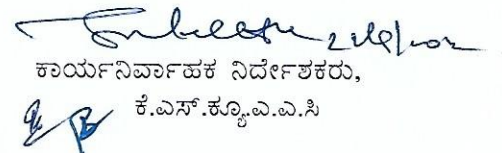 ಕಾರ್ಯನಿರ್ವಾಹಕ ನಿರ್ದೇಶಕರು,
ಕೆ.ಎಸ್.ಕ್ಯೂ.ಎ.ಎ.ಸಿ